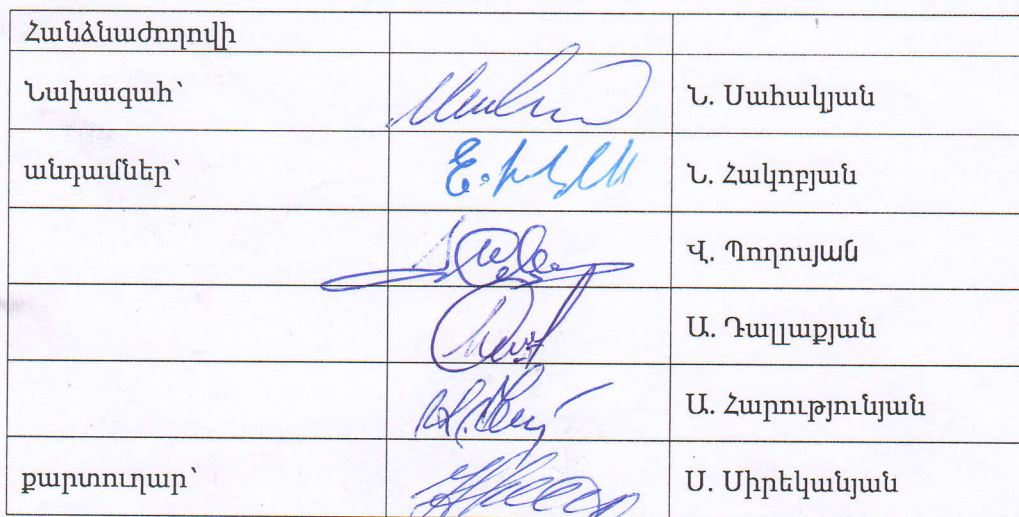 Հանձնաժողովի
Նախագահ՝ Ն. Սահակյան
անդամներ՝ Ն. Հակոբյան
Վ. Պողոսյան
Ա. Դալլաքյան
Ա. Հարությունյան
քարտուղար՝ Ս. Սիրեկանյան